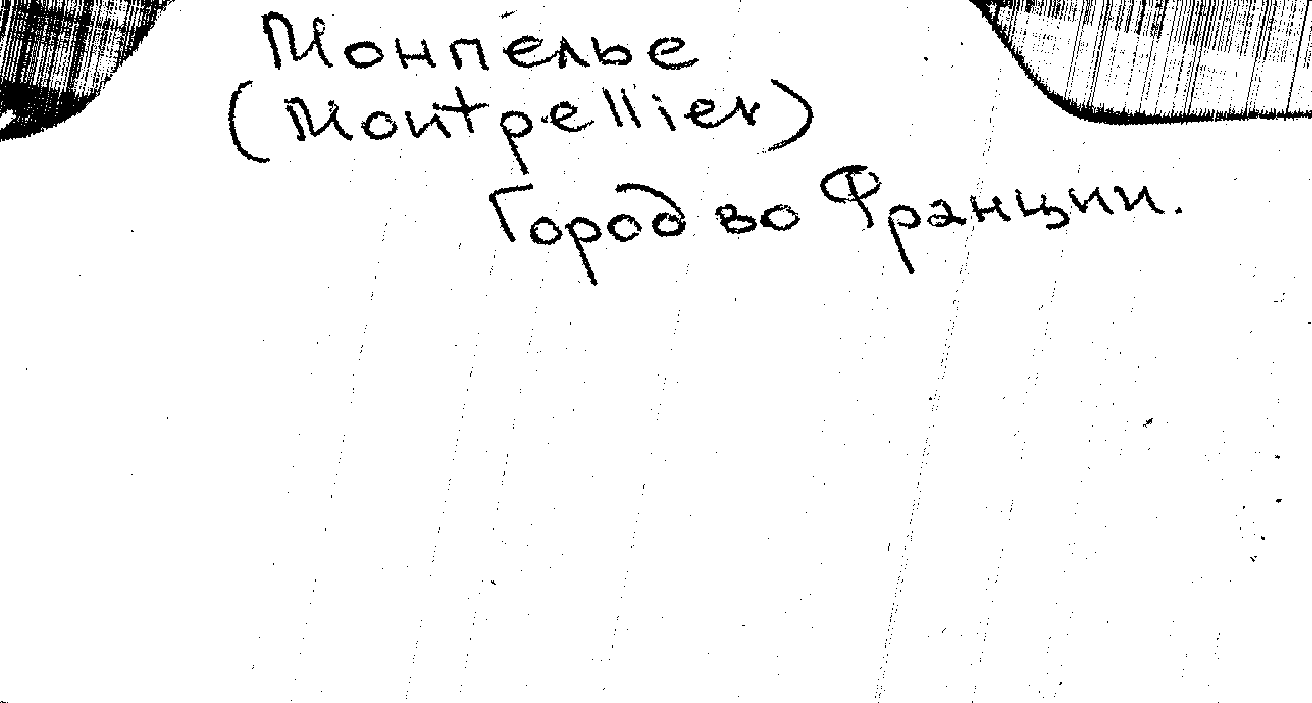 Монпелье
(Montpellier)
Город во Франции.